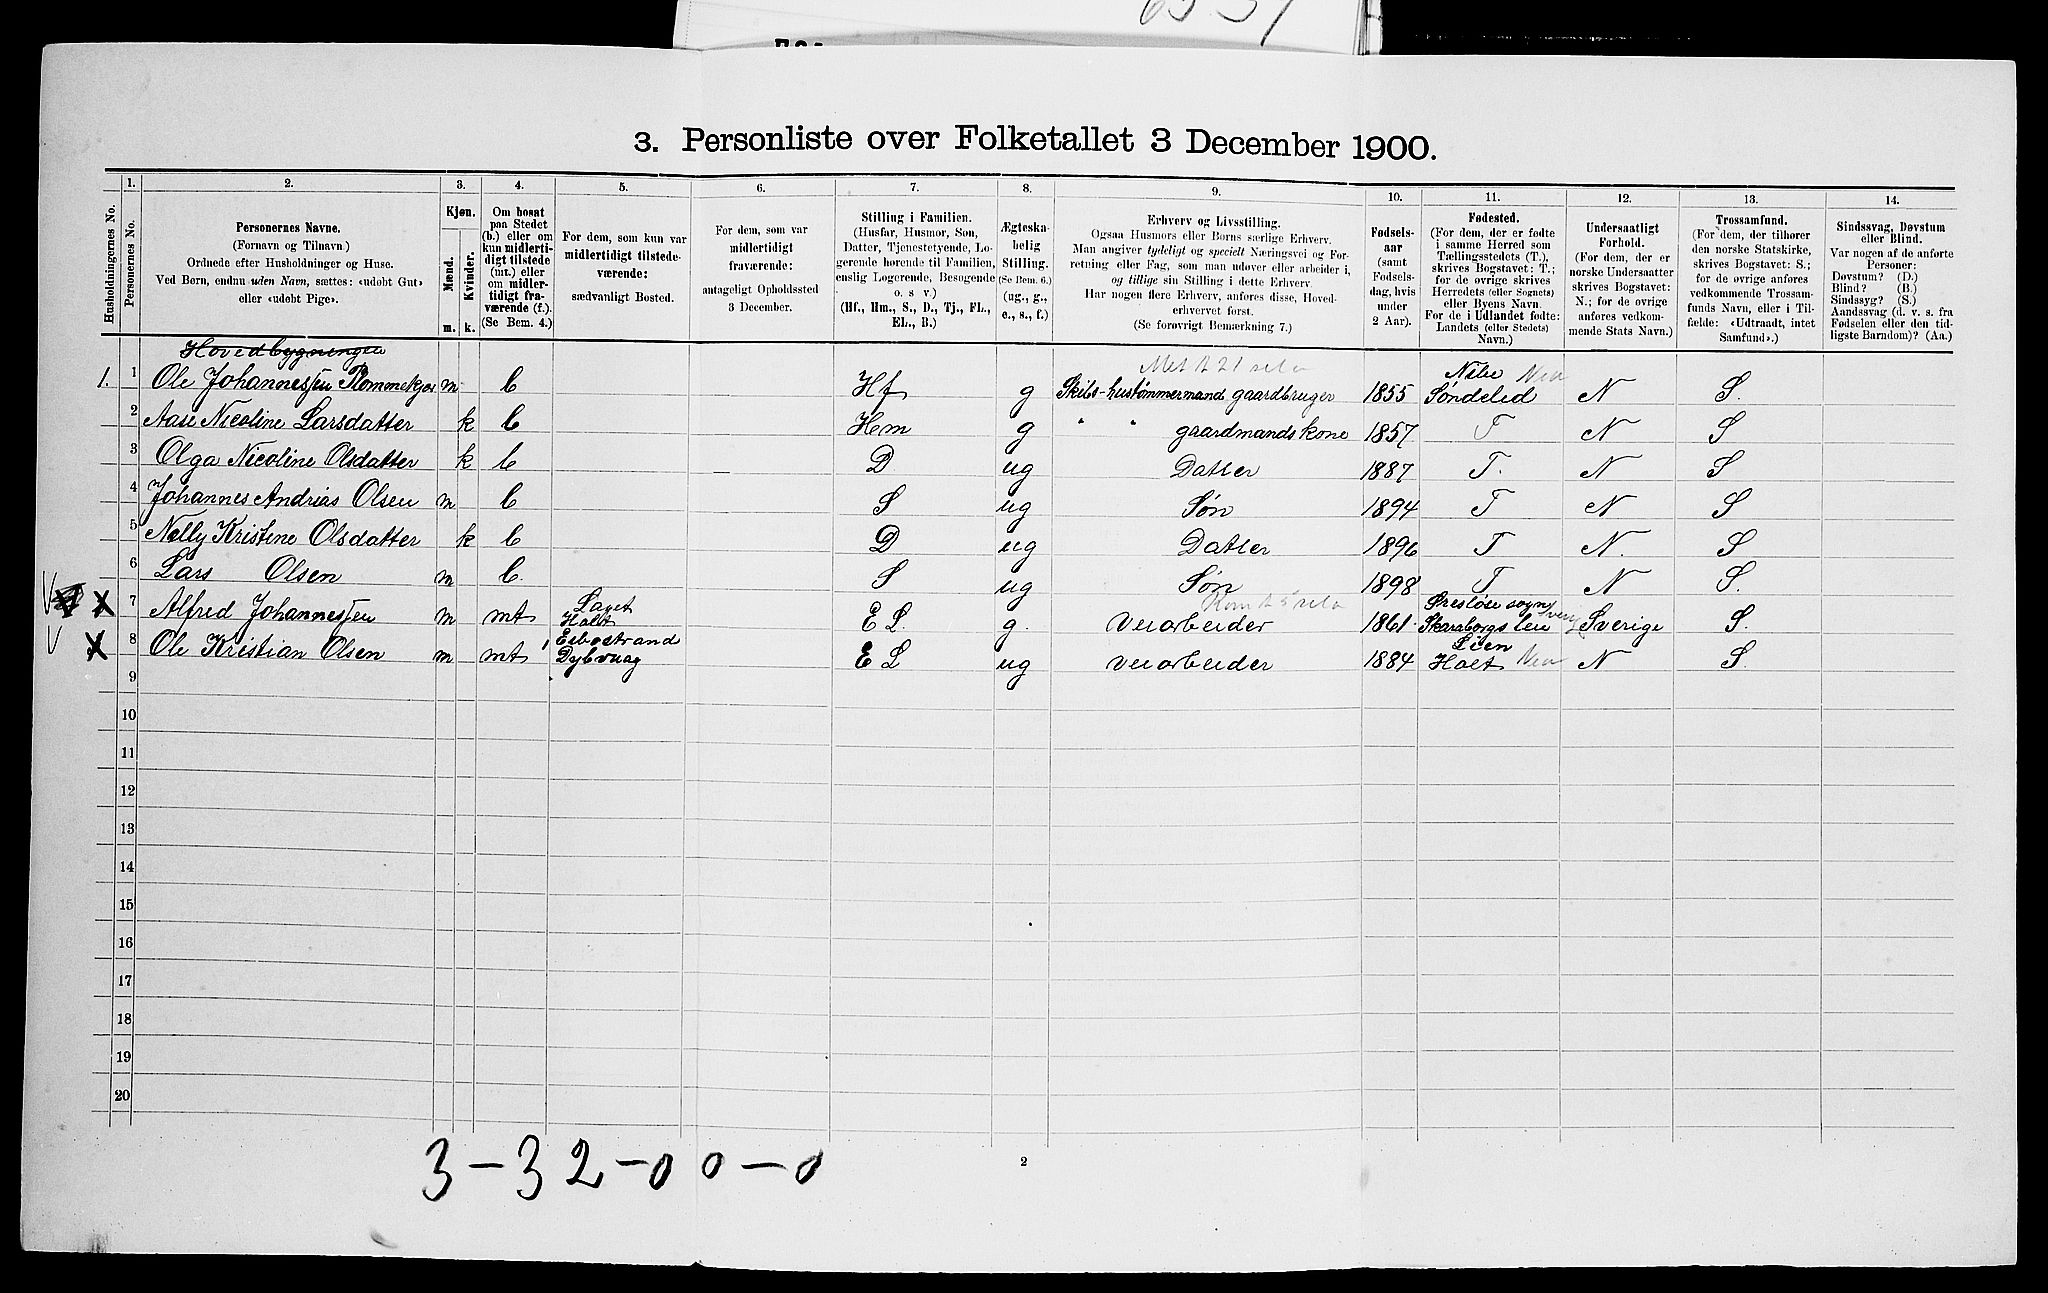 3. Personliste over Folketallet 3 December 1900.
1. 2. 3. 4. 5. 6. 7. 8. 9. 10. 11. 12. 13. 14.
Husholdningernes No.
Personernes No.
Personernes Navne.
(Fornavn og Tilnavn)
Ordnede efter Husholdninger og Huse.
Ved Børn, endnu uden Navn, sættes: «udøbt Gut»
eller «udøbt Pige».
Kjøn.
Mænd.
Kvinder.
m. k.
Om bosat
paa Stedet
(b.) eller om
kun midlerti-
digt tilstede
(mt.) eller
om midler-
tidigt fra-
værende (f.).
(Se Bem. 4.)
For dem, som kun var
midlertidigt tilstede-
værende:
sædvanligt Bosted.
For dem, som var
midlertidigt
fraværende:
antageligt Opholdssted
3 December.
Stilling i Familien.
(Husfar, Husmor, Søn,
Datter, Tjenestetyende, Lo-
gerende hørende til Familien,
enslig Logerende, Besøgende
o. s v.)
(Hf., Hm., S., D., Tj., FL.,
EL., B.)
Ægteska-
belig
Stilling.
(Se Bem. 6.)
(ug., g.,
e., s., f.)
Erhverv og Livsstilling.
Ogsaa Husmors eller Børns særlige Erhverv.
Man angiver tydeligt og specielt Næringsvei og For-
retning eller Fag, som man udøver eller arbeider i,
og tillige sin Stilling i dette Erhverv.
Har nogen flere Erhverv, anføres disse, Hoved-
erhvervet først.
(Se forøvrigt Bemærkning 7.)
Fødsels-
aar
(samt
Fødsels-
dag, hvis
under
2 Aar).
Fødested.
(For dem, der er fødte
i samme Herred som
Tællingsstedets (T.),
skrives Bogstavet: T.;
for de øvrige skrives
Herredets (eller Sognets)
eller Byens Navn.
For de i Udlandet fødte:
Landets (eller Stedets)
Navn.)
Undersaatligt
Forhold.
(For dem, der er
norske Undersaatter
skrives Bogstavet:
N.; for de øvrige
anføres vedkom-
mende Stats Navn.)
Trossamfund.
(For dem, der tilhører
den norske Statskirke,
skrives Bogstavet: S.;
for de øvrige anføres
vedkommende Trossam-
funds Navn, eller i Til-
fælde: «Udtraadt, intet
Samfund».)
Sindssvag, Døvstum
eller Blind.
Var nogen af de anførte
Personer:
Døvstum? (D.)
Blind? (B.)
Sindssyg? (S.)
Aandssvag (d. v. s. fra
Fødselen eller den tid-
ligste Barndom)? (Aa.)
Hovedbygningen
1. 1 Ole Johannessen Rommekjær m b Hf g Skibs-hustømmermand gaardbruger 1855 Søndeled N S.
2 Aase Nicoline Larsdatter k b Hm g " " gaardmandskone 1857 T N S
3 Olga Nicoline Olsdatter k b D ug Datter 1887 T. N S
4 Johannes Andrias Olsen m b S ug Søn 1894 T N S
5 Nelly Kristine Olsdatter k b D ug Datter 1896 T N. S
6 Lars Olsen m b. S ug Søn 1898 T N S.
7 Alfred Johannessen m mt Holt E L. g. veiarbeider 1861 Skaraborgs len Sverige S.
8 Ole Kristian Olsen m mt Dybvaag E L ug veiarbeider 1884 Holt N S.
9
10
11
12
13
14
15
16
17
18
19
20
3-32-00-0
2